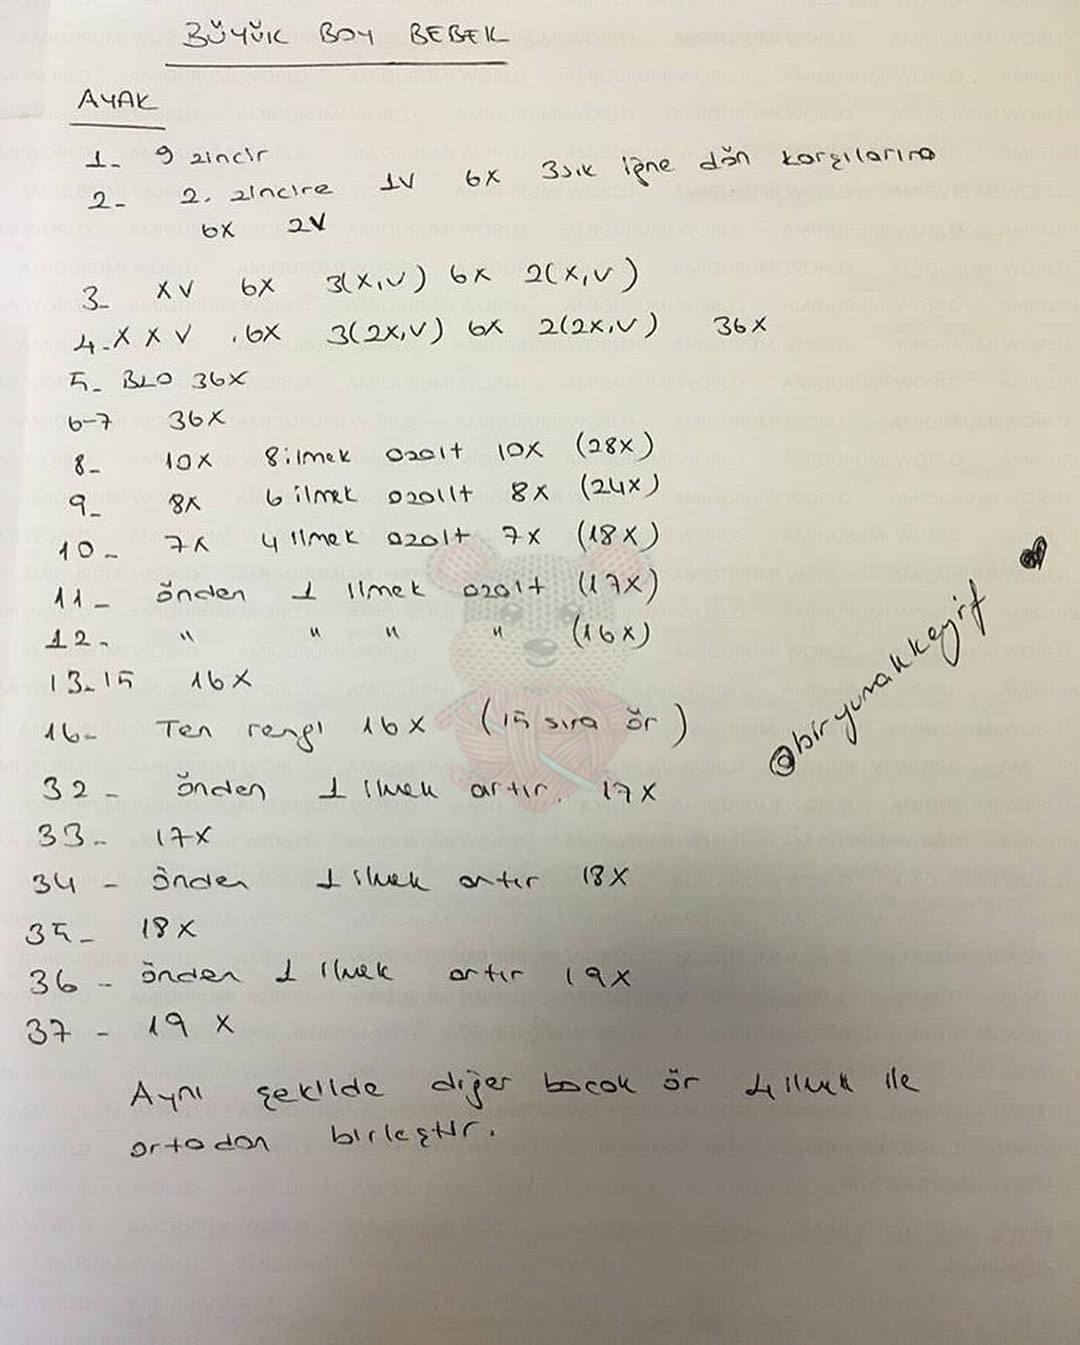 BÜYÜK BOY BEBEK
AYAK
1- 9 zincir
2- 2. zincire 1V 6X 3sık iğne dön karşılarına
6X 2V
3- XV 6X 3(X,V) 6X 2(X,V)
4- X X V .6X 3(2X,V) 6X 2(2X,V) 36X
5- BLO 36X
6-7 36X
8- 10X 8 ilmek azalt 10X (28X)
9- 8X 6 ilmek azallt 8X (24X)
10- 7X 4 ilmek azalt 7X (18X)
11- önden 1 ilmek azalt (17X)
12- " " " " (16X)
13-15 16X
16- Ten rengi 16X (15 sıra ör)
32- önden 1 ilmek artır. 17X
33- 17X
34- önden 1 ilmek artır 18X
35- 18X
36- önden 1 ilmek artır 19X
37- 19 X
Aynı şekilde diğer bacak ör 4 ilmek ile
ortadan birleştir.
@biryumakkeyif
AMIGURUMI WORLD